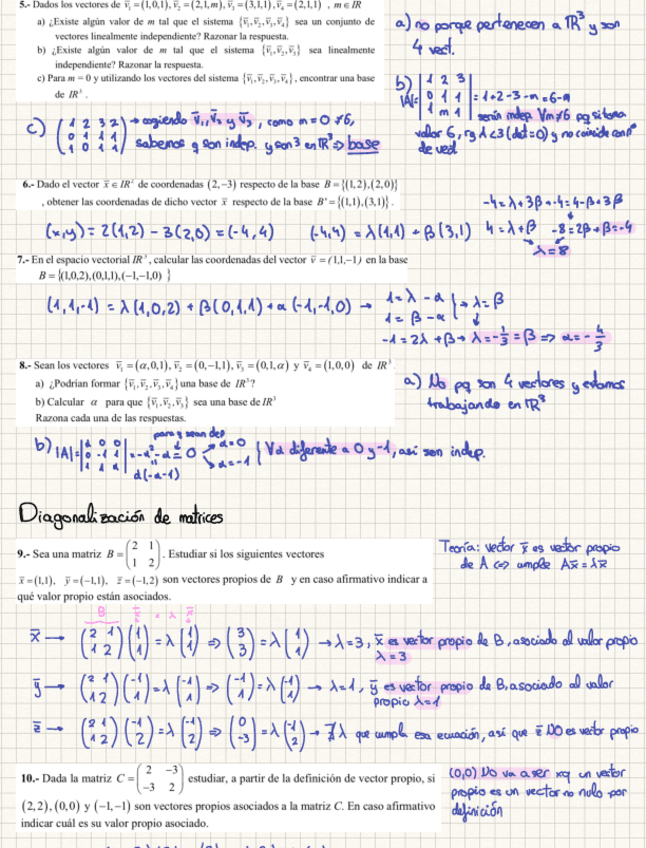 5.- Dados los vectores de v̄₁ = (1,0,1), v̄₂ = (2,1,m), v̄₃ = (3,1,1), v̄₄ = (2,1,1) , m ∈ IR
a) ¿Existe algún valor de m tal que el sistema {v̄₁,v̄₂,v̄₃,v̄₄} sea un conjunto de
vectores linealmente independiente? Razonar la respuesta.
b) ¿Existe algún valor de m tal que el sistema {v̄₁,v̄₂,v̄₃} sea linealmente
independiente? Razonar la respuesta.
c) Para m = 0 y utilizando los vectores del sistema {v̄₁,v̄₂,v̄₃,v̄₄}, encontrar una base
de IR³ .
a) no porque pertenecen a IR³ y son
4 vect.
b) |A| = |1 2 3; 0 1 1; 1 m 1| = 1+2-3-m = 6-m
serán indep ∀m≠6 pq si toma
valor 6, rg A<3 (det=0) y no coincide con nº
de vect
c) (1 2 3 2; 0 1 1 1; 1 0 1 1) → cogiendo v̄₁, v̄₂ y v̄₃, como m=0 ≠6,
sabemos q son indep. y son 3 en IR³ ⇒ base
6.- Dado el vector x̄ ∈ IR² de coordenadas (2,−3) respecto de la base B = {(1,2),(2,0)}
, obtener las coordenadas de dicho vector x̄ respecto de la base B' = {(1,1),(3,1)} .
(x,y) = 2(1,2) - 3(2,0) = (-4,4) (-4,4) = λ(1,1) + β(3,1)
-4 = λ+3β → -4 = 4-β+3β
4 = λ+β -8 = 2β → β = -4
λ = 8
7.- En el espacio vectorial IR³, calcular las coordenadas del vector v̄ = (1,1,−1) en la base
B = {(1,0,2),(0,1,1),(−1,−1,0) }
(1,1,-1) = λ(1,0,2) + β(0,1,1) + α(-1,-1,0) → 1 = λ - α
1 = β - α } → λ = β
-1 = 2λ + β → λ = -1/3 = β ⇒ α = -4/3
8.- Sean los vectores v̄₁ = (α,0,1), v̄₂ = (0,−1,1), v̄₃ = (0,1,α) y v̄₄ = (1,0,0) de IR³
a) ¿Podrian formar {v̄₁,v̄₂,v̄₃,v̄₄} una base de IR³?
b) Calcular α para que {v̄₁,v̄₂,v̄₃} sea una base de IR³
Razona cada una de las respuestas.
a) No pq son 4 vectores y estamos
trabajando en IR³
para q sean dep
b) |A| = |α 0 0; 0 -1 1; 1 1 α| = -α²-α = 0 → α=0
α(-α-1) α=-1 } ∀α diferente a 0 y -1, así son indep.
Diagonalización de matrices
9.- Sea una matriz B = (2 1; 1 2) . Estudiar si los siguientes vectores
x̄ = (1,1), ȳ = (−1,1), z̄ = (−1,2) son vectores propios de B y en caso afirmativo indicar a
qué valor propio están asociados.
Teoría: vector x̄ es vector propio
de A ⇔ cumple Ax̄ = λx̄
x̄ → (2 1; 1 2)(1; 1) = λ(1; 1) ⇒ (3; 3) = λ(1; 1) → λ=3, x̄ es vector propio de B, asociado al valor propio
λ=3
ȳ → (2 1; 1 2)(-1; 1) = λ(-1; 1) ⇒ (-1; 1) = λ(-1; 1) → λ=1, ȳ es vector propio de B, asociado al valor
propio λ=1
z̄ → (2 1; 1 2)(-1; 2) = λ(-1; 2) ⇒ (0; -3) = λ(-1; 2) → ∄λ que cumpla esa ecuación, así que z̄ NO es vector propio
10.- Dada la matriz C = (2 −3; −3 2) estudiar, a partir de la definición de vector propio, si
(2,2), (0,0) y (−1,−1) son vectores propios asociados a la matriz C. En caso afirmativo
indicar cuál es su valor propio asociado.
(0,0) No va a ser xq un vector
propio es un vector no nulo por
definición